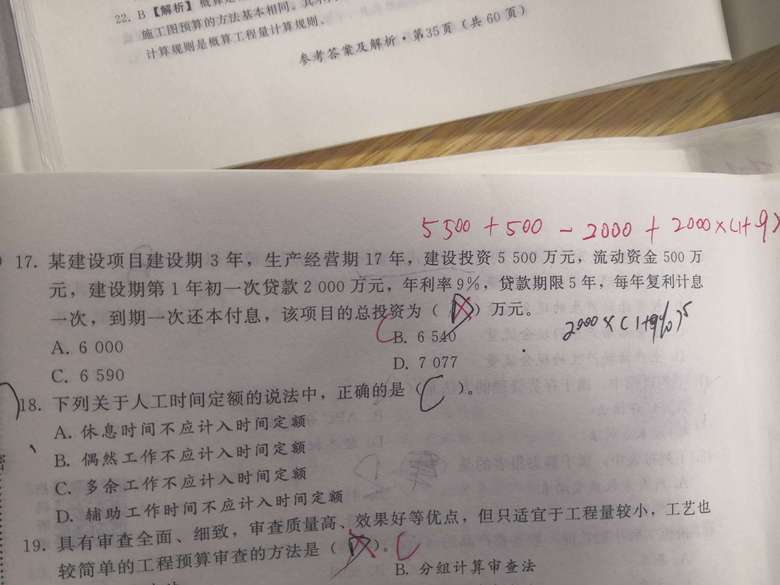 22. B【解析】概算定
施工图预算的方法基本相同。其
计算规则是概算工程量计算规则。
参考答案及解析·第35页（共60页）
5500+500-2000+2000×(1+9
17. 某建设项目建设期 3 年，生产经营期 17 年，建设投资 5 500 万元，流动资金 500 万
元，建设期第 1 年初一次贷款 2 000 万元，年利率 9%，贷款期限 5 年，每年复利计息
一次，到期一次还本付息，该项目的总投资为（ D ）万元。
C
2000×(1+9%)5
A. 6 000
B. 6 540
C. 6 590
D. 7 077
18. 下列关于人工时间定额的说法中，正确的是（ C ）。
A. 休息时间不应计入时间定额
B. 偶然工作不应计入时间定额
C. 多余工作不应计入时间定额
D. 辅助工作时间不应计入时间定额
19. 具有审查全面、细致，审查质量高、效果好等优点，但只适宜于工程量较小，工艺也
较简单的工程预算审查的方法是（ D ）。C
B. 分组计算审查法